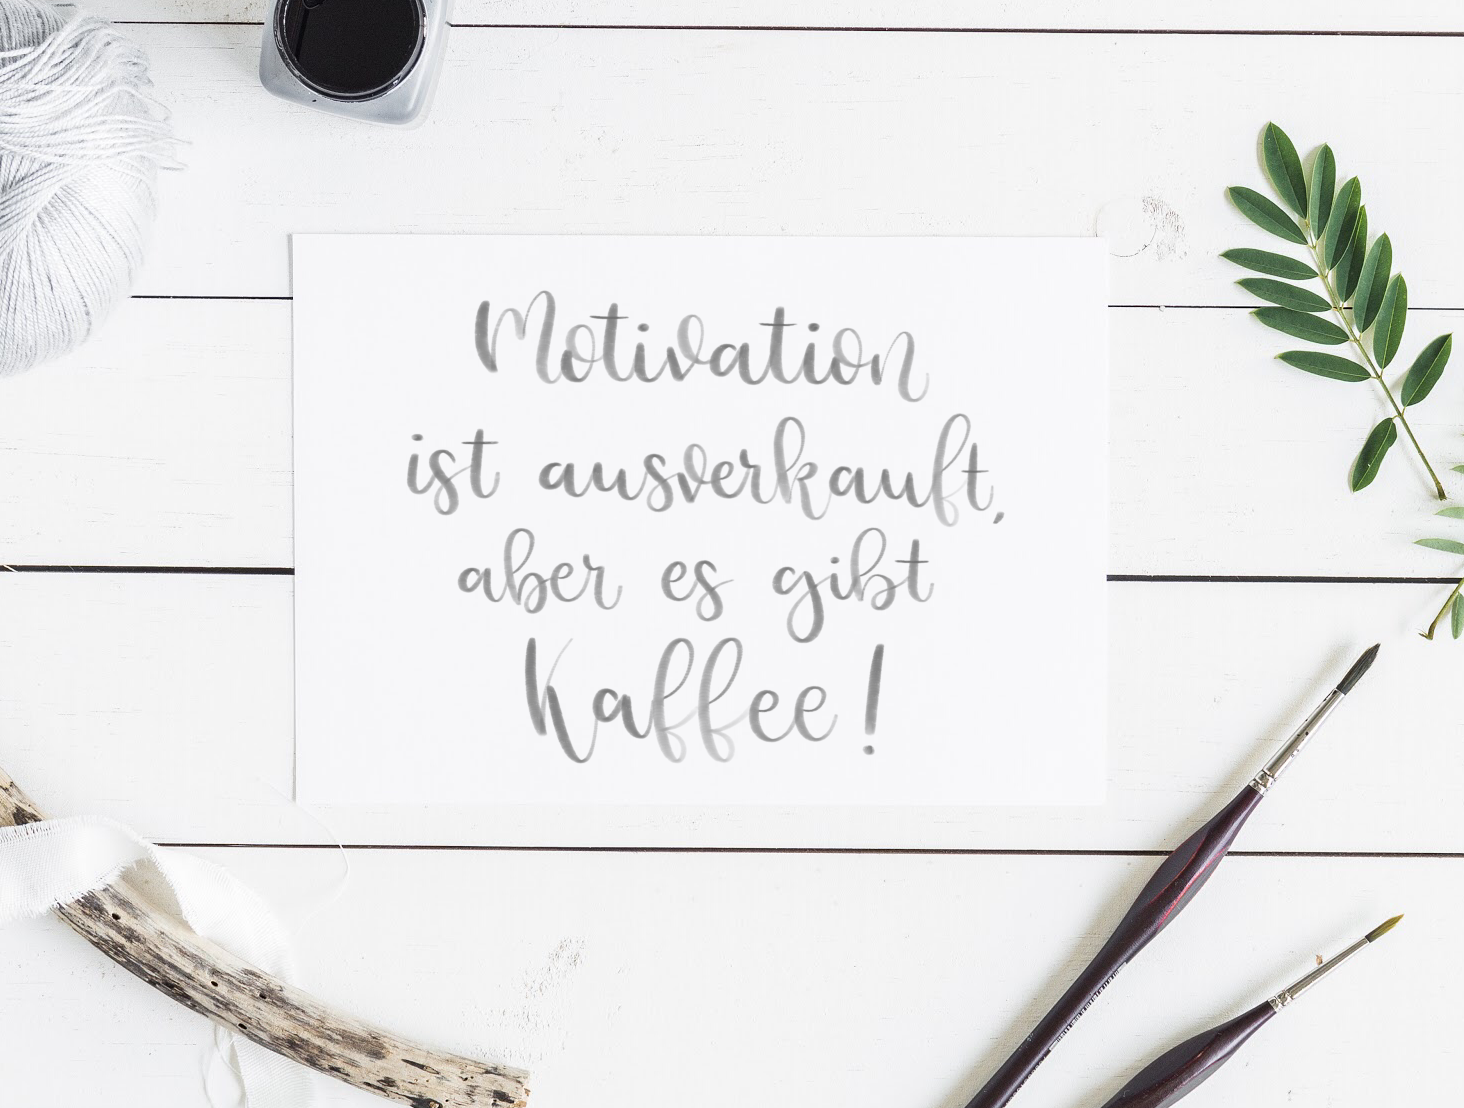 Motivation
ist ausverkauft,
aber es gibt
Kaffee!